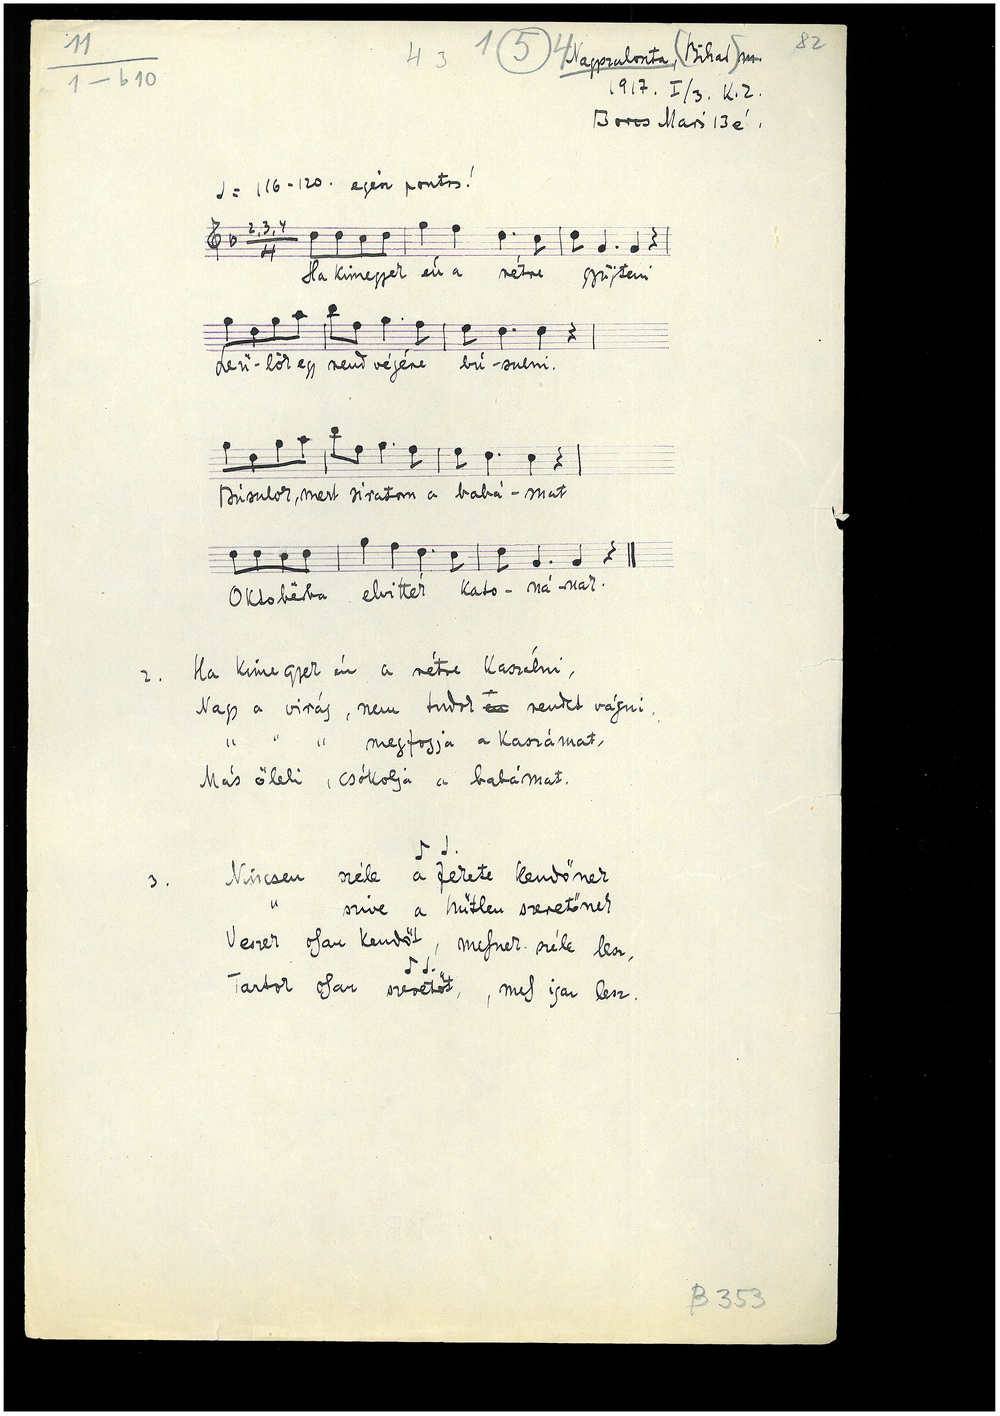 11
1 – b 10
43 1 5 4 82
Nagyszalonta, (Bihar) m.
1917. I/3. K.Z.
Boros Mari Bé.
♩ = 116-120. egész pontos!
2, 3, 4
4
Ha kimegyek én a rétre gyűjteni
Leü-lök egy rend végére bú-sulni.
Búsulok, mert siratom a babá-mat
Októbërba elvitték kato-ná-nak.
2. Ha kimegyek én a rétre kaszálni,
Nagy a virág, nem tudok én rendet vágni,
" " " megfogja a kaszámat,
Más öleli, csókolja a babámat.
3. Nincsen széle a fekete kendőnek
" szive a hűtlen szeretőnek
Veszek ojan kendőt, mejnek széle lesz,
Tartok ojan szeretőt, mej igaz lesz.
B 353